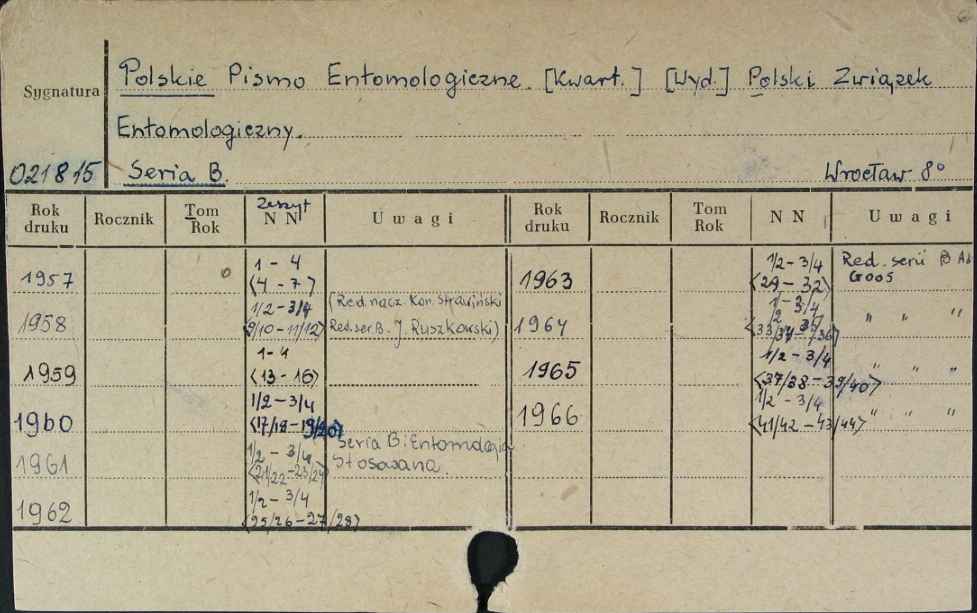 Polskie Pismo Entomologiczne. [Kwart.] [Wyd.] Polski Związek
Sygnatura
Entomologiczny.
021815 Seria B. Wrocław 8°
Rok druku Rocznik Tom Rok Zeszyt N N Uwagi Rok druku Rocznik Tom Rok N N Uwagi
1957 1-4 <4-7>
1958 1/2-3/4 <9/10-11/12> (Red. nacz. Kon. Strawiński
Red. ser. B. J. Ruszkowski)
1959 1-4 <13-16>
1960 1/2-3/4 <17/18-19/20>
1961 1/2-3/4 <21/22-23/24> Seria B: Entomologia
Stosowana.
1962 1/2-3/4 <25/26-27/28>
1963 1/2-3/4 <29-32> Red. serii B
Goos
1964 " " "
1965 1/2-3/4 <37/38-39/40> " " "
1966 1/2-3/4 <41/42-43/44> " " "